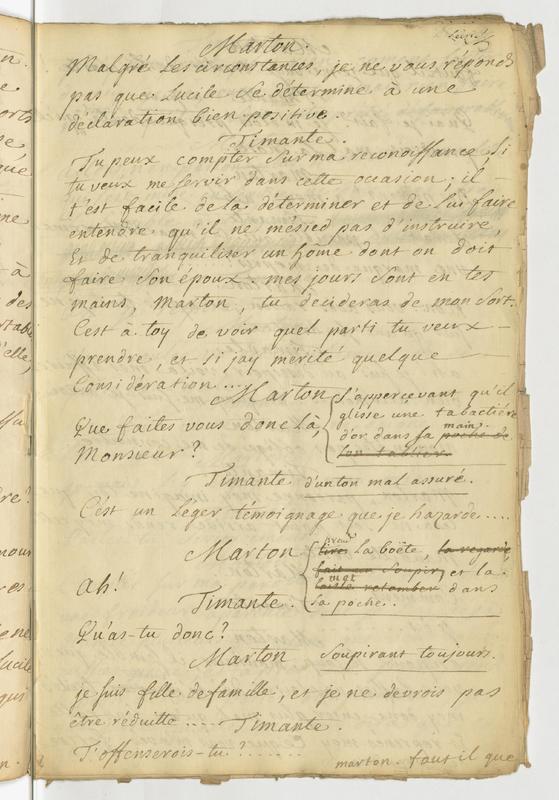 Marton.
Malgré les circonstances, je ne vous répond
pas que Lucile se détermine à une
déclaration bien positive.
Timante.
Tu peux compter sur ma reconoissance, si
tu veux me servir dans cette occasion; il
t'est facile de la déterminer et de lui faire
entendre qu'il ne mésied pas d'instruire,
Et de tranquiliser un hôme dont on doit
faire son époux. mes jours sont en tes
mains, Marton, tu decideras de mon sort.
C'est à toy de voir quel parti tu veux
prendre, et si j'ay mérité quelque
Considération...
Marton
s'appercevant qu'il
glisse une tabactière
d'or dans sa poche de main.
son tablier.
Que faites vous donc là,
Monsieur?
Timante d'un ton mal assuré.
C'est un Leger témoignage que je hazarde....
Marton
prend
tire la boëte, la regarde,
fait un soupir, et la
met
laisse retomber dans
sa poche.
Ah!
Timante.
Qu'as-tu donc?
Marton soupirant toujours.
je suis fille de famille, et je ne devrois pas
être réduitte.... Timante.
T'offenserois-tu?.......
marton. faut il que